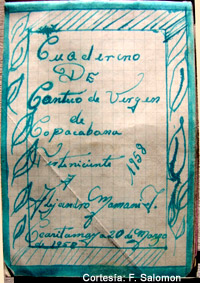 Cuaderino
DE
Cantuo de Virgen
de
Copacabana
Perteniciente
1958
Alejandro Mamani T.
Ccaritamaya 20 de Marzo
de 1958
Cortesía: F. Salomon